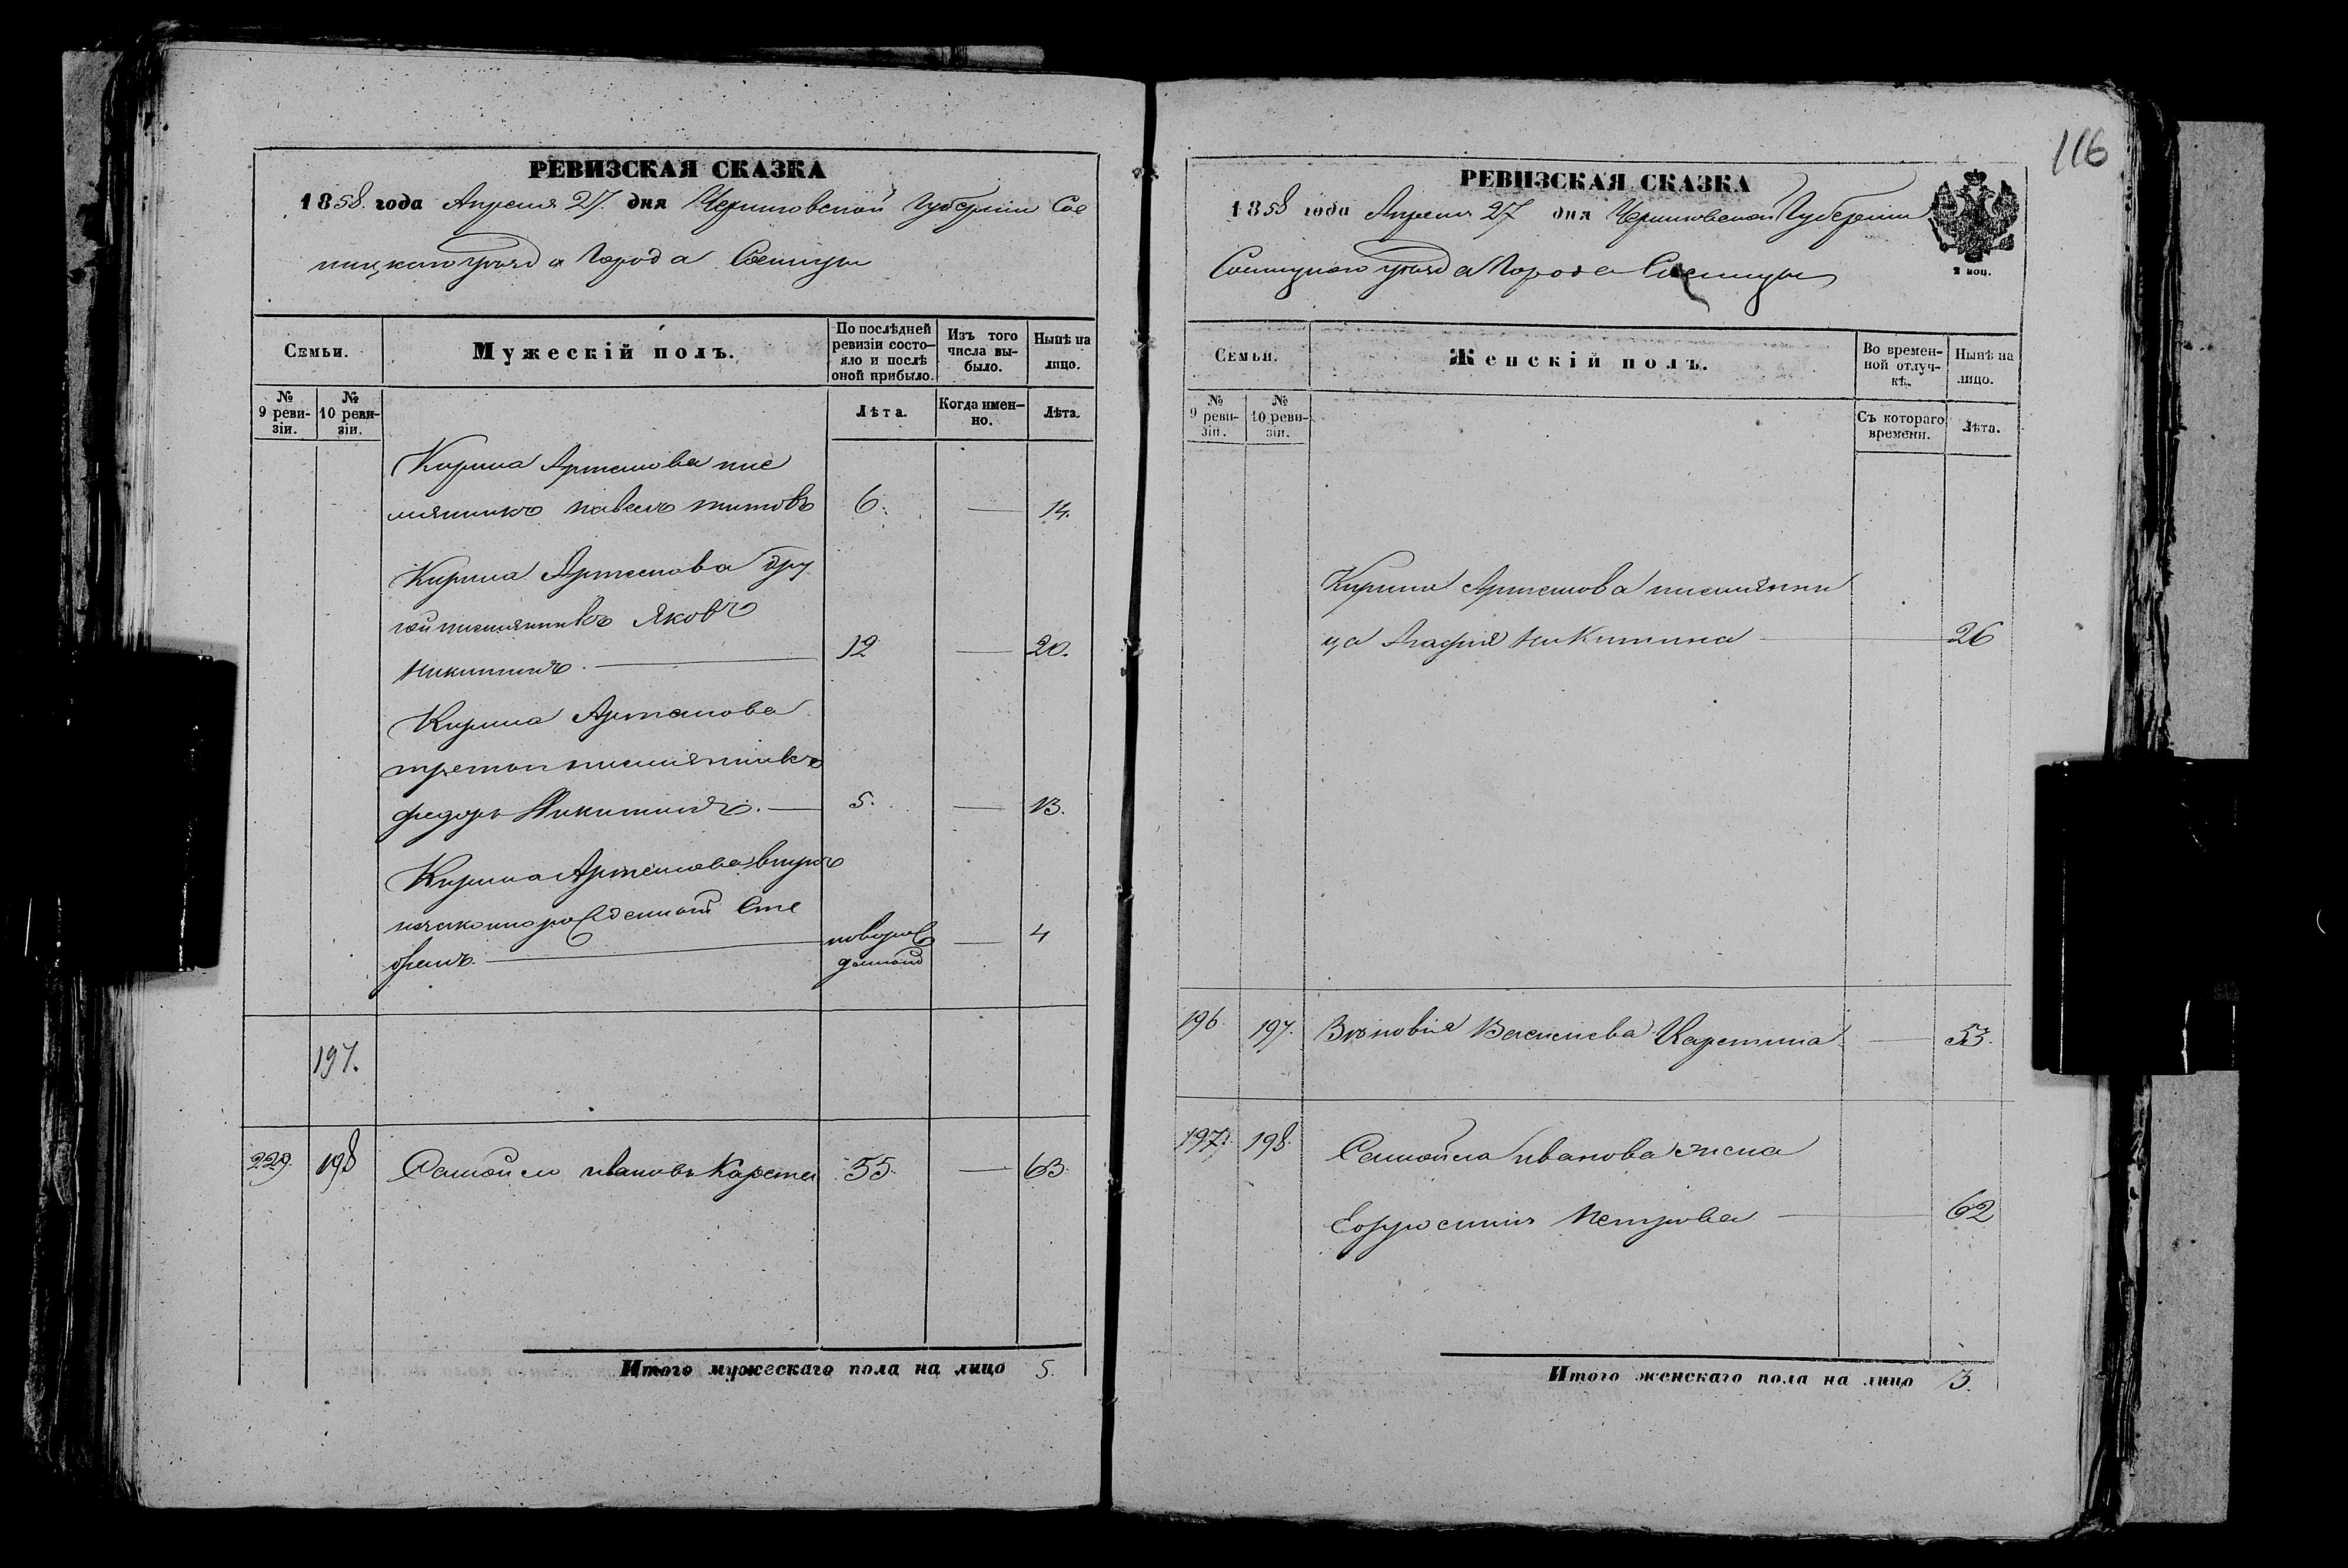 РЕВИЗСКАЯ СКАЗКА
1858. года Апреля 27. дня Черниговской Губернии Сос
ницкого уезда Города Сосницы
Семьи.
Мужескій полъ.
По послѣдней ревизіи состо-
яло и послѣ
оной прибыло.
Изъ того
числа вы-
было.
Нынѣ на
лицо.
№
9 реви-
зіи.
№
10 реви-
зіи.
Лѣта.
Когда имен-
но.
Лѣта.
Кирила Артемова пле
мянникъ павелъ титовъ 6. 14.
Кирила Артемова дру
гой племянникъ Яковъ
Никитинъ 12 20.
Кирила Артемова
третий племянникъ
федоръ Никитинъ. 5. 13.
Кирила Артемова внукъ
незаконнорожденный Сте
фанъ. новорож
данный 4
197.
229. 198 Самойло ивановъ Карета 55. 63.
Итого мужескаго пола на лицо 5.
116
РЕВИЗСКАЯ СКАЗКА
1858 года Апреля 27 дня Черниговской Губернии
Сосницкого уезда Города Сосницы
2 коп.
Семьи.
Женскій полъ.
Во времен-
ной отлуч-
кѣ.
Нынѣ на
лицо.
№
9 реви-
зіи.
№
10 реви-
зіи.
Съ котораго
времени.
Лѣта.
Кирила Артемова племянни
ца Агафия Никитина 26
196. 197. Зѣновія Василиева Каретина 53.
197. 198. Самойла иванова жена
Ефросиния Петрова 62
Итого женскаго пола на лицо 3.